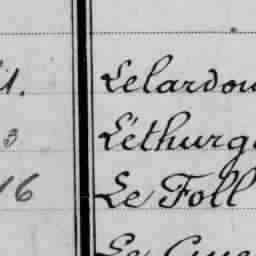 1. Lelardou
3 Léthurg
16 Le Foll
Le Gue